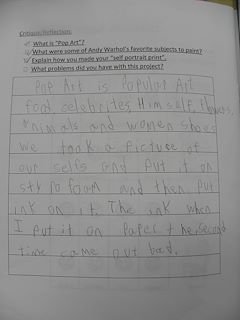 Critique/Reflection:
What is "Pop Art"?
What were some of Andy Warhol's favorite subjects to paint?
Explain how you made your "self portrait print".
What problems did you have with this project?
Pop Art is Popular Art
food celebrities Him self, flowers,
animals and women shoes
we took a Picture of
our selfs and put it on
sty ro foam and then put
ink on it. The ink when
I put it on Paper the second
time came out bad.